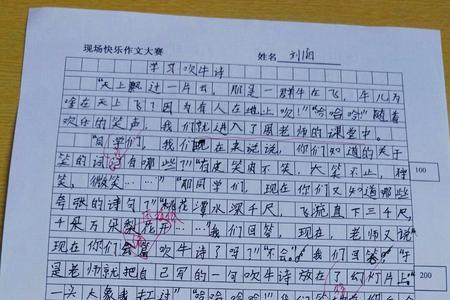 现场快乐作文大赛 姓名 刘闻
学习吹牛诗
“天上飘过一片云,那是一群牛在飞,牛儿为
啥在天上飞?因为有人在地上吹!”“哈哈哈”随着
欢乐的笑声,我们就进入了周老师的课堂中。
“同学们,我们现在来说说,你们知道的关于
笑的词语有哪些?”“有皮笑肉不笑,大笑不止,狂
笑,微笑……”“那同学们,现在你们又知道哪些 100
夸张的诗句?”“桃花潭水深千尺,飞流直下三千尺,
千朵万朵梨花开……”我们回答,现在,老师又说“
现在你们会写吹牛诗了吗?”“不会。”我们回答。于
是老师就把自己写的一句吹牛诗放在了幻灯片上。 200
一头大象我打过”“哈哈哈哈